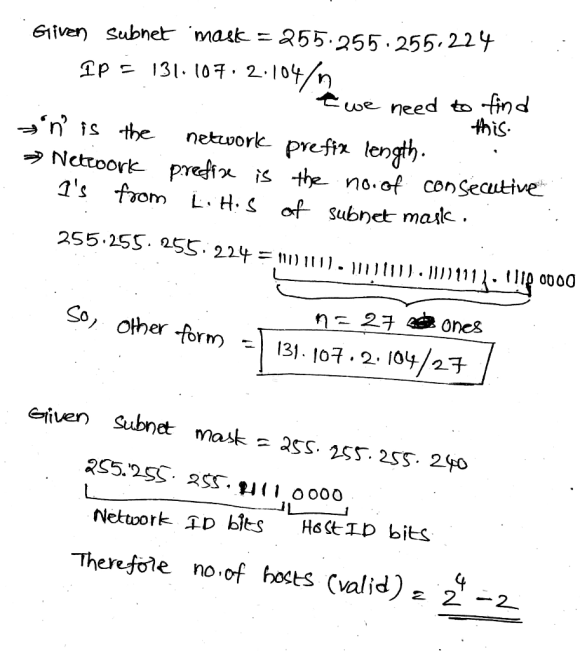 Given subnet mask = 255.255.255.224
IP = 131.107.2.104/n
we need to find
this.
→ 'n' is the network prefix length.
⇒ Network prefix is the no.of consecutive
1's from L.H.S of subnet mask.
255.255.255.224 = 11111111.11111111.11111111.1110 0000
n = 27 ones
So, other form = 131.107.2.104/27
Given subnet mask = 255.255.255.240
255.255.255.1111 0000
Network ID bits Host ID bits
Therefore no.of hosts (valid) = 2⁴-2